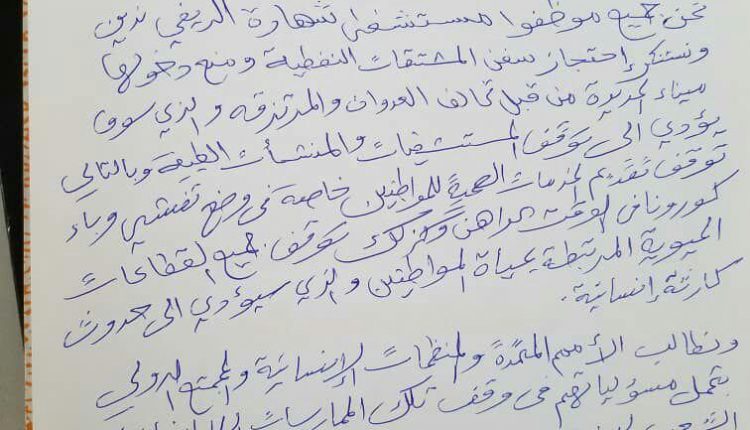 نحن جميع موظفوا مستشفى شهارة الريفي ندين
ونستنكر إحتجاز سفن المشتقات النفطية ومنع دخولها
ميناء الحديدة من قبل تحالف العدوان والمرتزقه والذي سوف
يؤدي الى توقف المستشفيات والمنشأت الطبية وبالتالي
توقف تقديم الخدمات الصحية للمواطنين خاصة في وضع تفشي وباء
كورونا في الوقت الراهن وكذلك توقف جميع القطاعات
الحيوية المرتبطة بحياة المواطنين والذي سيؤدي الى حدوث
كارثة إنسانية.
ونطالب الأمم المتحدة والمنظمات الإنسانية والمجتمع الدولي
بتحمل مسؤلياتهم في وقف تلك الممارسات